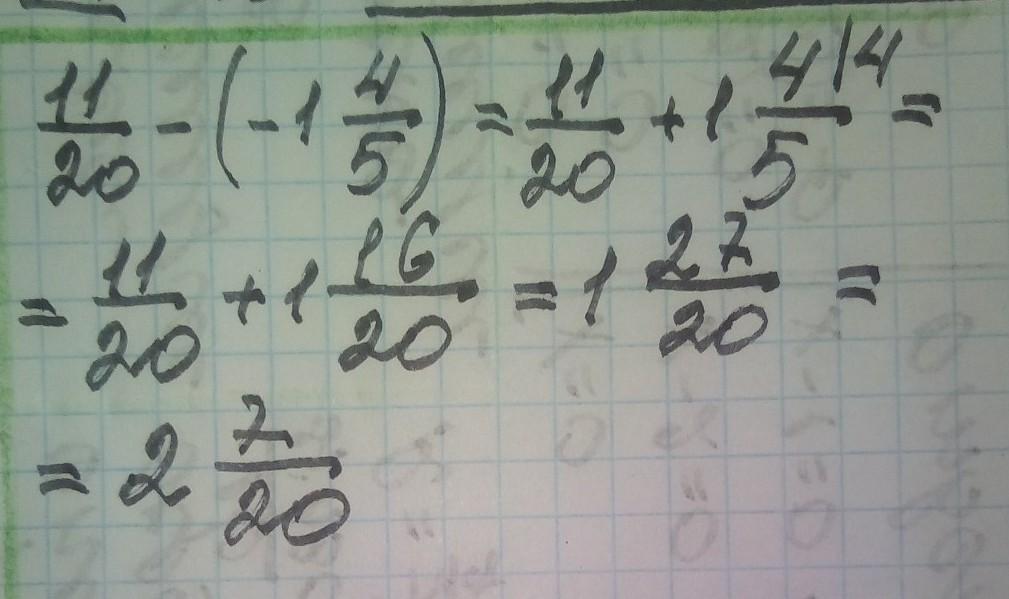 11/20 - (-1 4/5) = 11/20 + 1 4|4/5 =
= 11/20 + 1 16/20 = 1 27/20 =
= 2 7/20